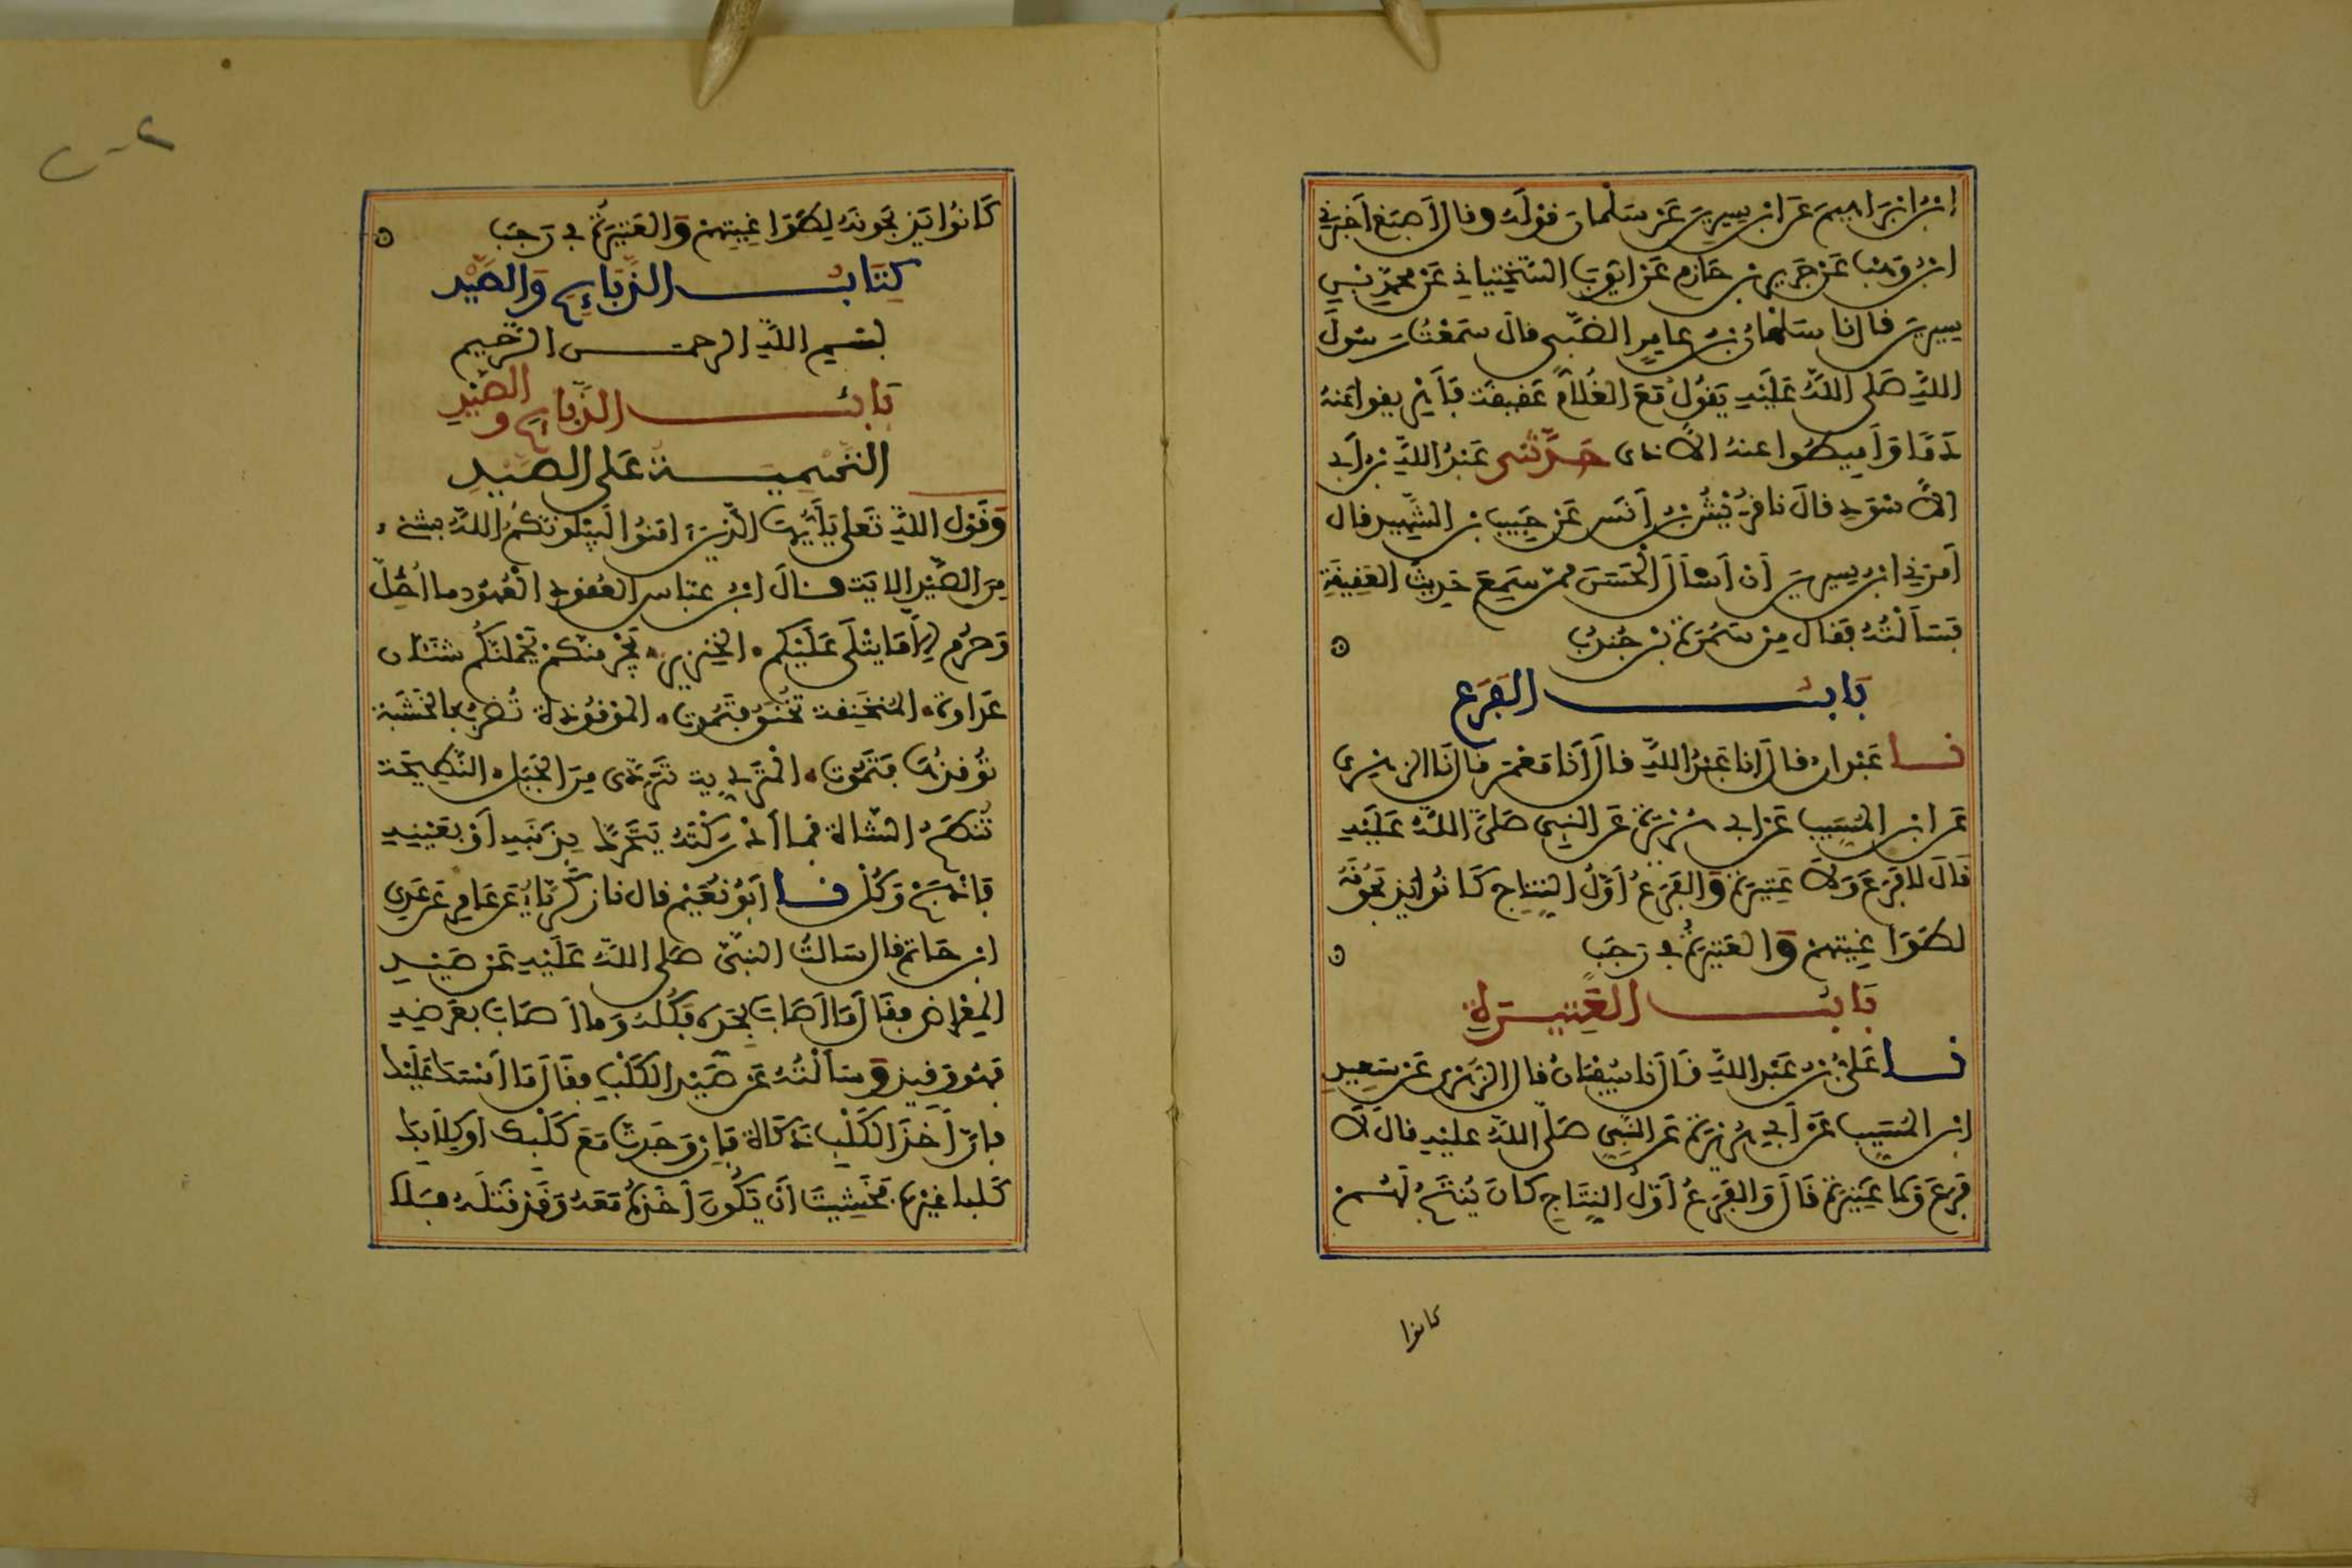 ابن ابراهيم عن ابن سيرين عن سلمان قوله وقال أصبغ أخبرني
ابن وهب عن جرير بن حازم عن ايوب السختياني عن محمد بن سي
سيرين قال نا سلمان بن عامر الضبي قال سمعت رسول
الله صلى الله عليه يقول مع الغلام عقيقة فأهريقوا عنه
دما وأميطوا عنه الاذى حدثني عبد الله بن أبي
الأسود قال نا قريش بن أنس عن حبيب بن الشهيد قال
أمرني ابن سيرين أن أسأل الحسن ممن سمع حديث العقيقة
فسألته فقال من سمرة بن جندب
باب الفرع
نا عبدان قال انا عبد الله قال أنا معمر قال نا الزهري
عن ابن المسيب عن ابي هريرة عن النبي صلى الله عليه
قال لا فرع ولا عتيرة والفرع أول النتاج كانوا يذبحونه
لطواغيتهم والعتيرة في رجب
باب العتيرة
نا علي بن عبد الله قال نا سفيان قال الزهري عن سعيد
ابن المسيب عن أبي هريرة عن النبي صلى الله عليه قال لا
فرع ولا عتيرة قال والفرع أول النتاج كان ينتج لهم
كانوا
كانوا يذبحونه لطواغيتهم والعتيرة في رجب
كتاب الذبائح والصيد
بسم الله الرحمن الرحيم
باب الذبائح والصيد
التسمية على الصيد
وقول الله تعلى يأيها الذين امنوا ليبلونكم الله بشيء
من الصيد الاية وقال ابن عباس العقود العهود ما أحل
وحرم إلا ما يتلى عليكم الخنزير يجرمنكم يحملنكم شنئان
عداوة المنخنقة تخنق فتموت الموقوذة تضرب بالخشبة
توقذها فتموت المتردية تتردى من الجبل النطيحة
تنطح الشاة فما أدركته يتحرك بذنبه أو بعينيه
فاذبح وكل نا أبو نعيم قال نا زكرياء عن عامر عن عدي
ابن حاتم قال سالت النبي صلى الله عليه عن صيد
المعراض فقال ما أصاب بحده فكله وما أصاب بعرضه
فهو وقيذ وسألته عن صيد الكلب فقال ما أمسك عليك
فإن أخذ الكلب ذكاة فإن وجدت مع كلبك أو كلابك
كلبا غيره فخشيت أن يكون أخذه معه وقد قتله فلا